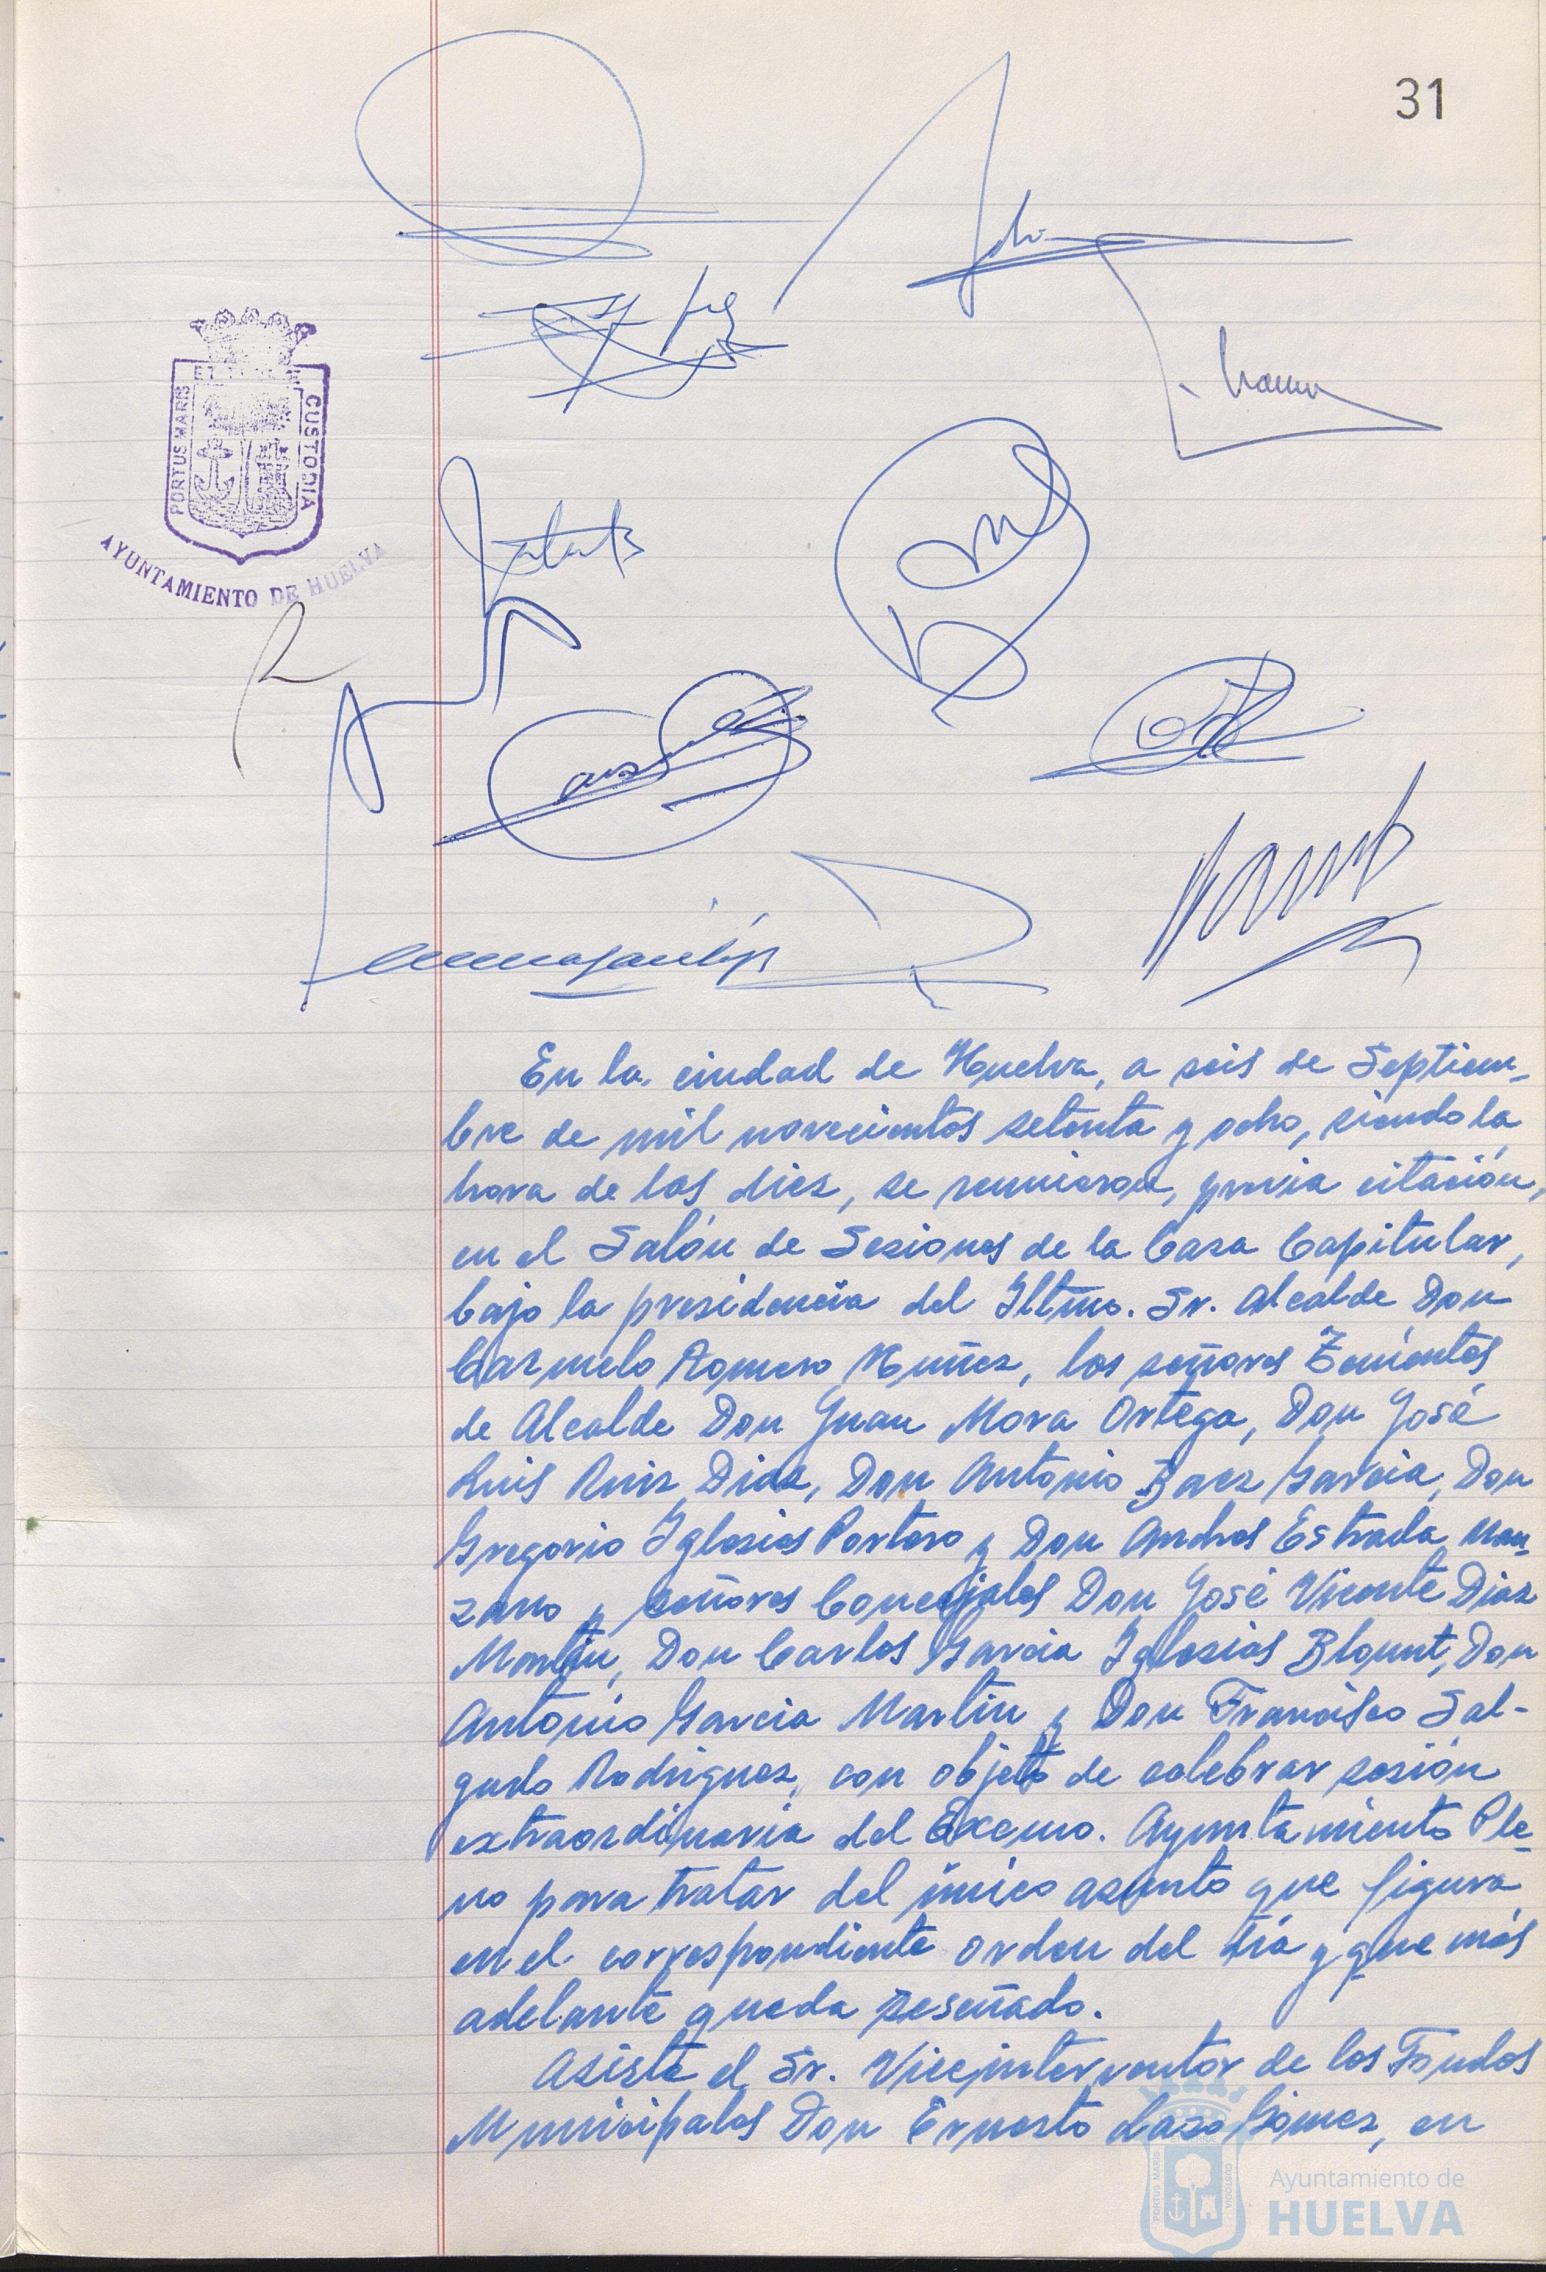 31
ET TERRAE
PORTUS MARIS
CUSTODIA
AYUNTAMIENTO DE HUELVA
En la ciudad de Huelva, a seis de Septiem-
bre de mil novecientos setenta y ocho, siendo la
hora de las diez, se reunieron, previa citación,
en el Salón de Sesiones de la Casa Capitular,
bajo la presidencia del Iltmo. Sr. Alcalde Don
Carmelo Romero Nuñez, los señores Tenientes
de Alcalde Don Juan Mora Ortega, Don José
Luis Ruiz Diaz, Don Antonio Baez Garcia, Don
Gregorio Iglesias Portero y Don Andres Estrada Man-
zano y señores Concejales Don José Vicente Diaz
Martin, Don Carlos Garcia Iglesias Blount, Don
Antonio Garcia Martin y Don Francisco Sal-
gado Rodriguez, con objeto de celebrar sesión
extraordinaria del Excmo. Ayuntamiento Ple-
no para tratar del único asunto que figura
en el correspondiente orden del día y que más
adelante queda reseñado.
Asiste el Sr. Viceinterventor de los Fondos
Municipales Don Ernesto Lazo Gómez, en
PORTUS MARIS
CUSTODIA
Ayuntamiento de
HUELVA